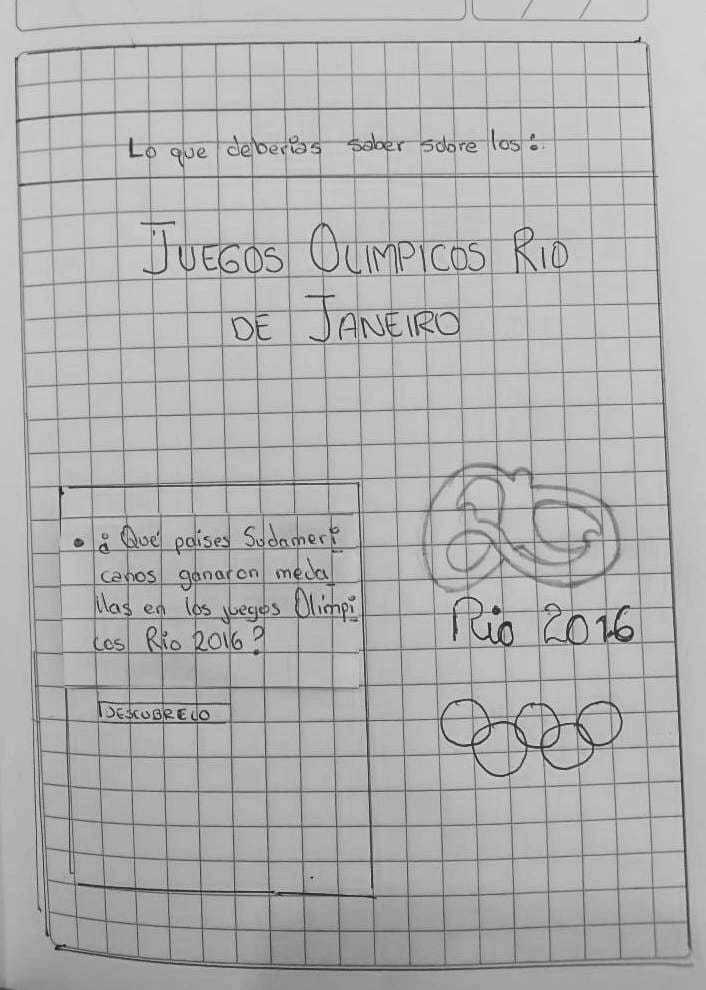 Lo que deberias saber sobre los:
JUEGOS OLIMPICOS RIO
DE JANEIRO
• ¿Qué paises Sudameri
canos ganaron meda
llas en los juegos Olimpi
cos Rio 2016?
DESCUBRELO
Rio 2016